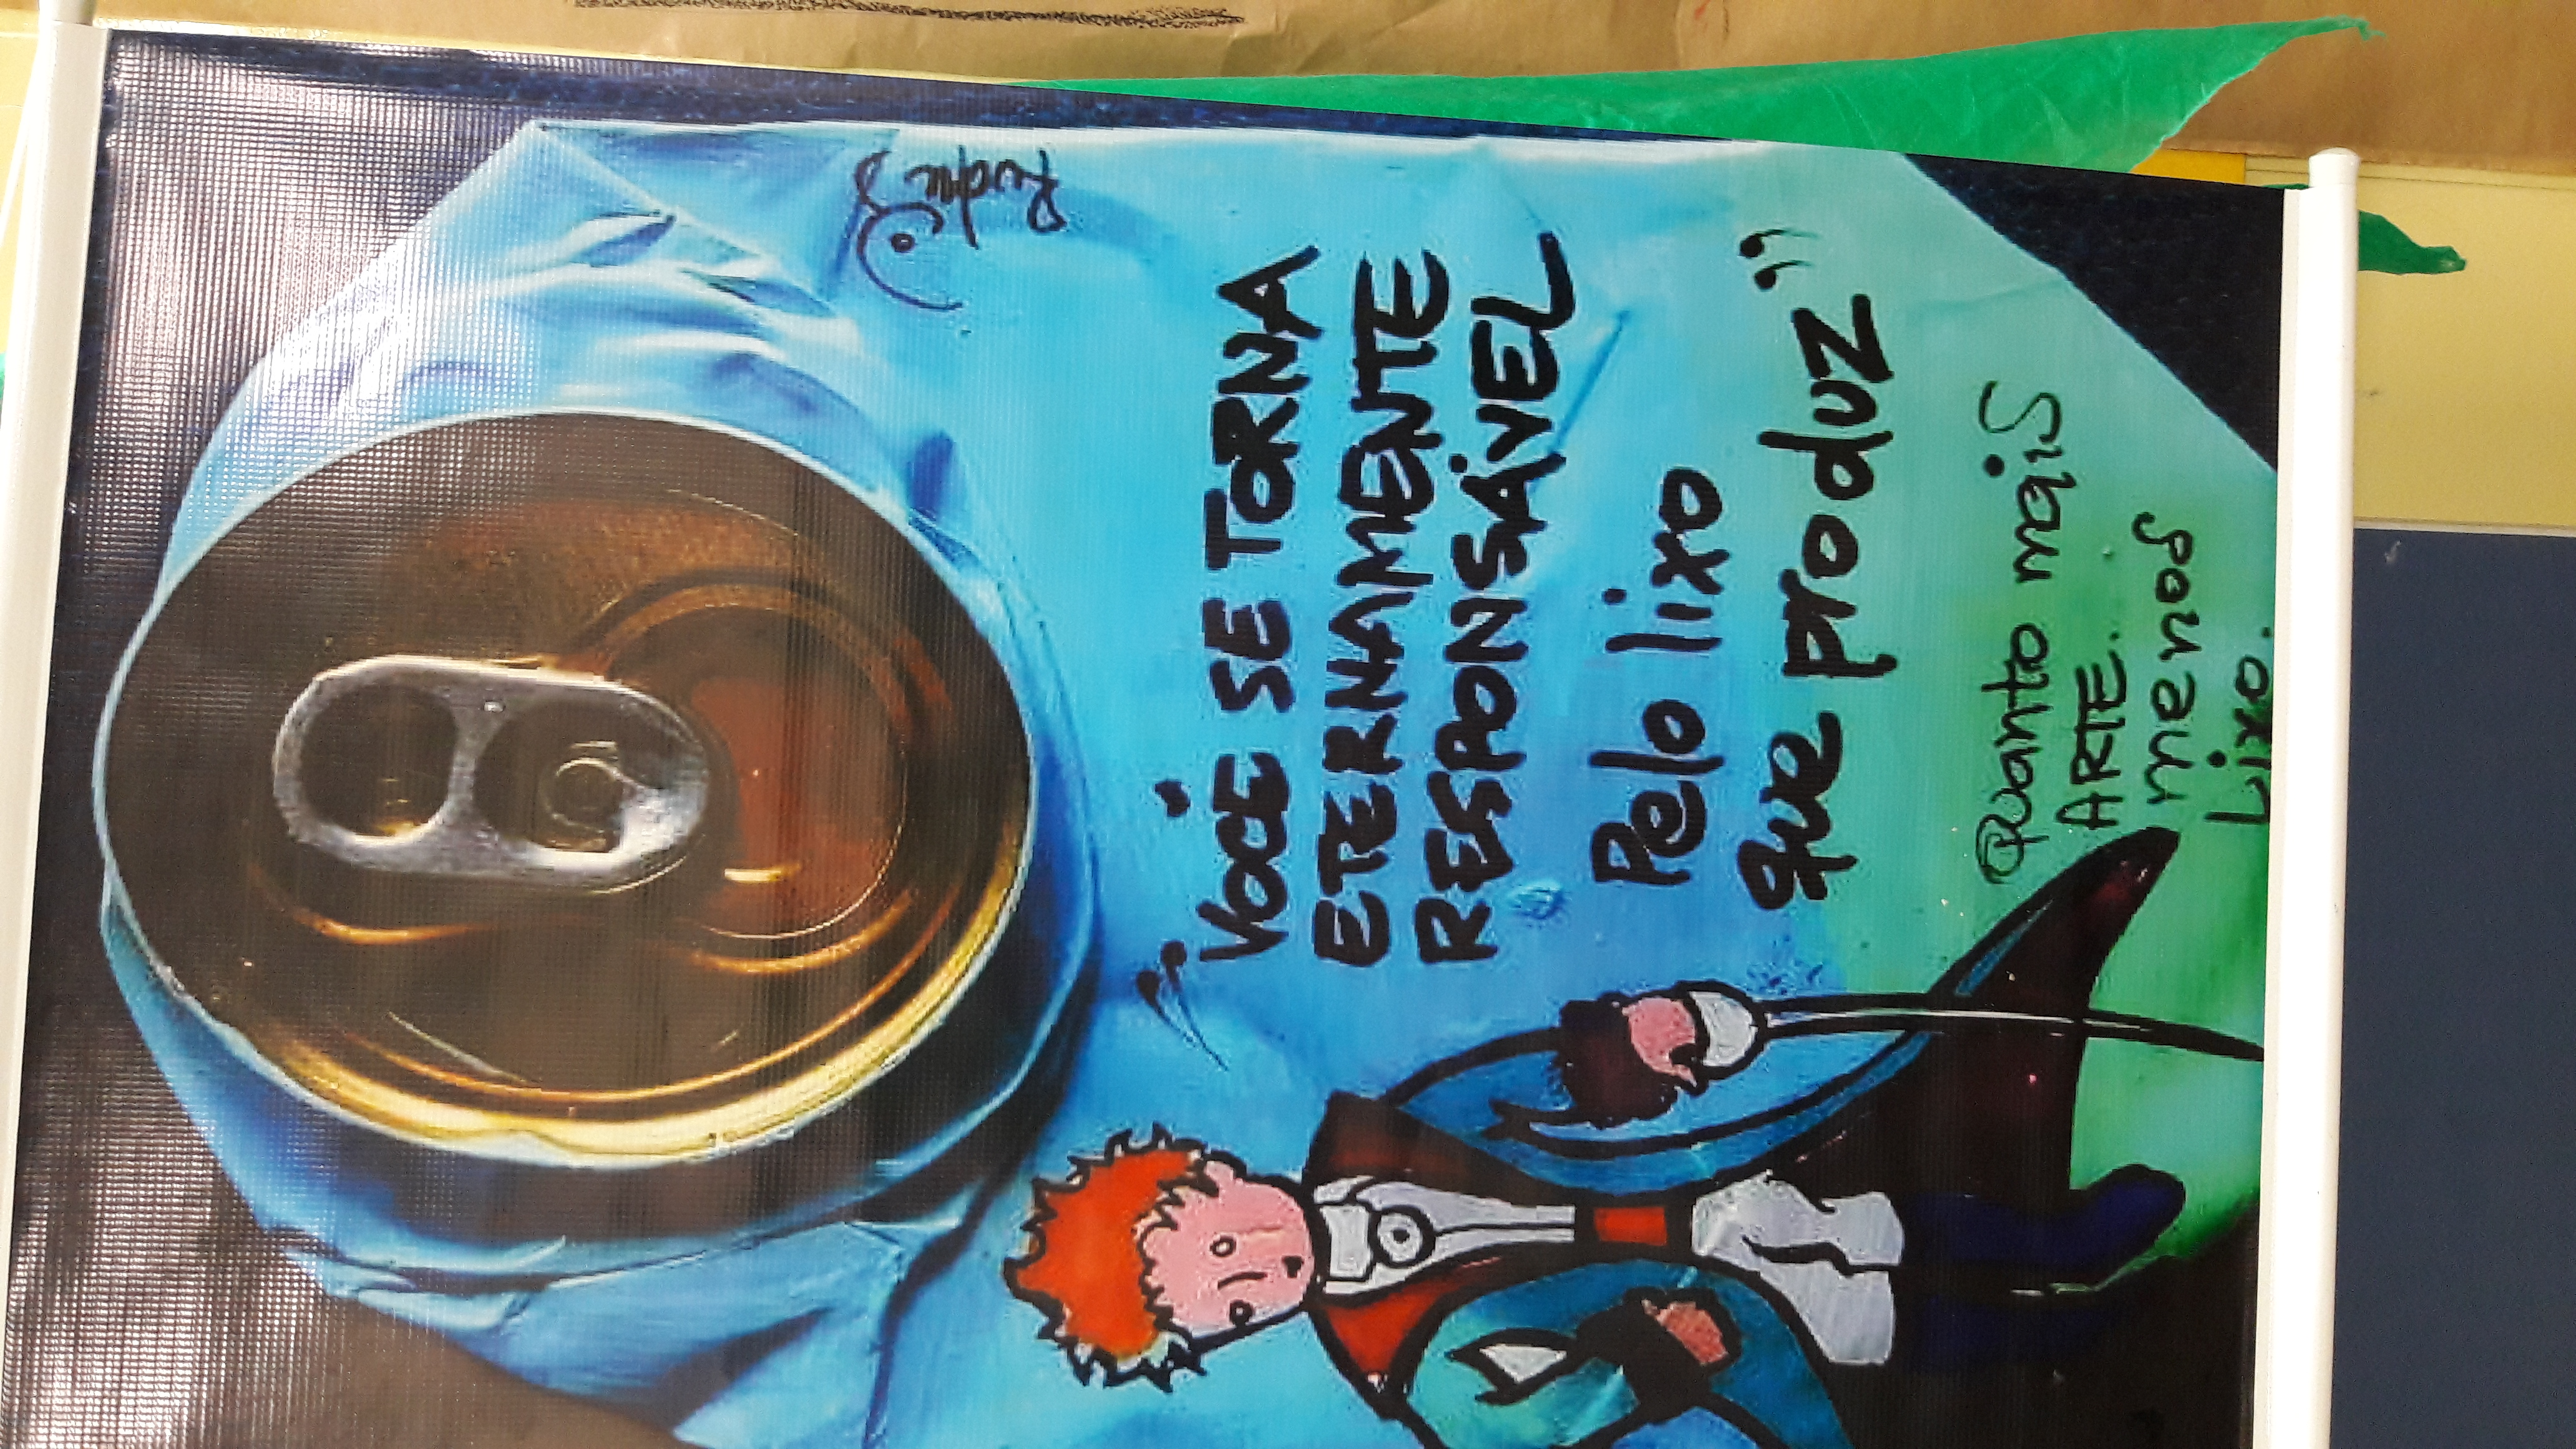 "VOCÊ SE TORNA
ETERNAMENTE
RESPONSÁVEL
Pelo lixo
que produz"
Quanto mais
ARTE.
menos
Lixo.